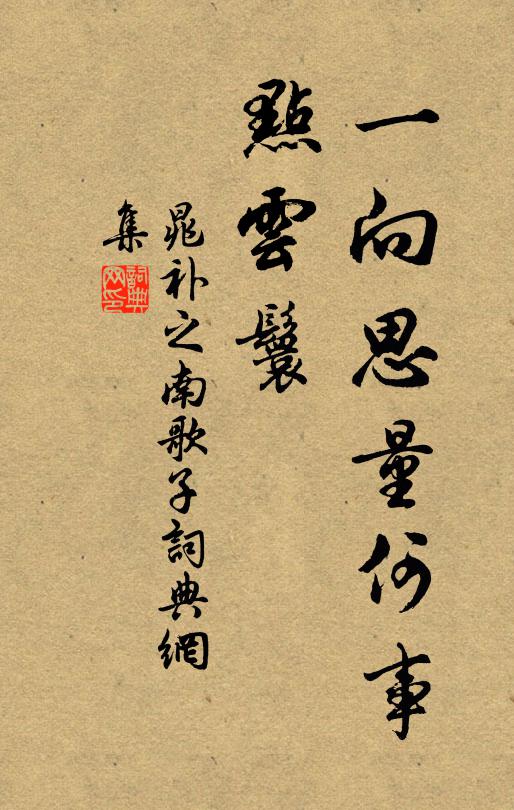 一向思量何事
點雲鬟
晁补之南歌子詞典網
集
詞典网印